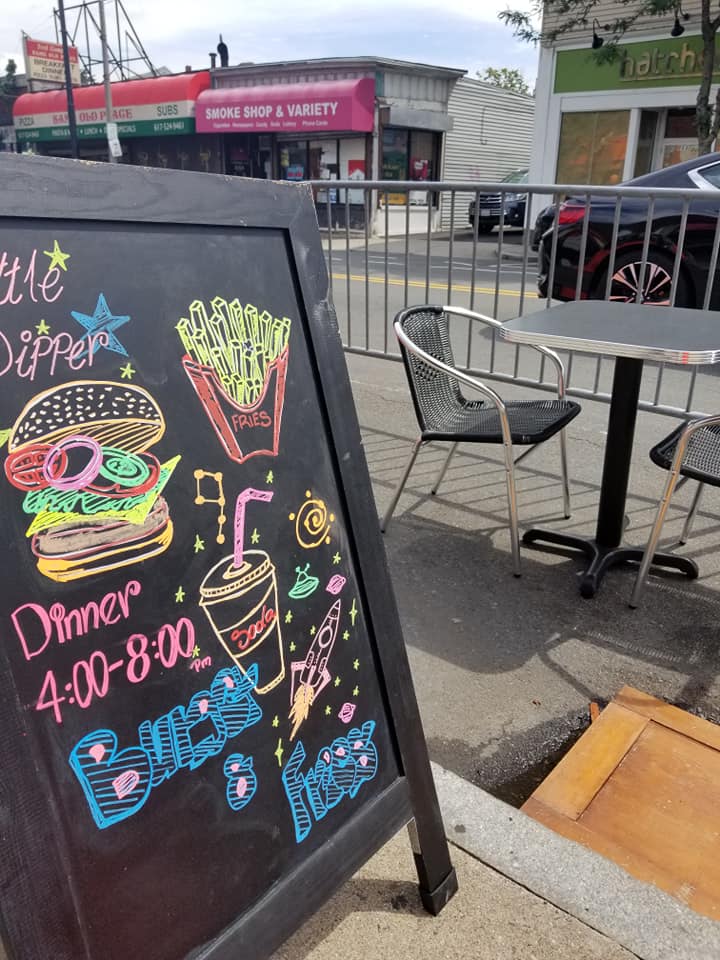 BREAKFAST
PIZZA
SUBS
617-524-9461
SMOKE SHOP & VARIETY
hatch
ttle
Dipper
FRIES
Soda
Dinner
4:00-8:00 pm
Burgs
&
Fries